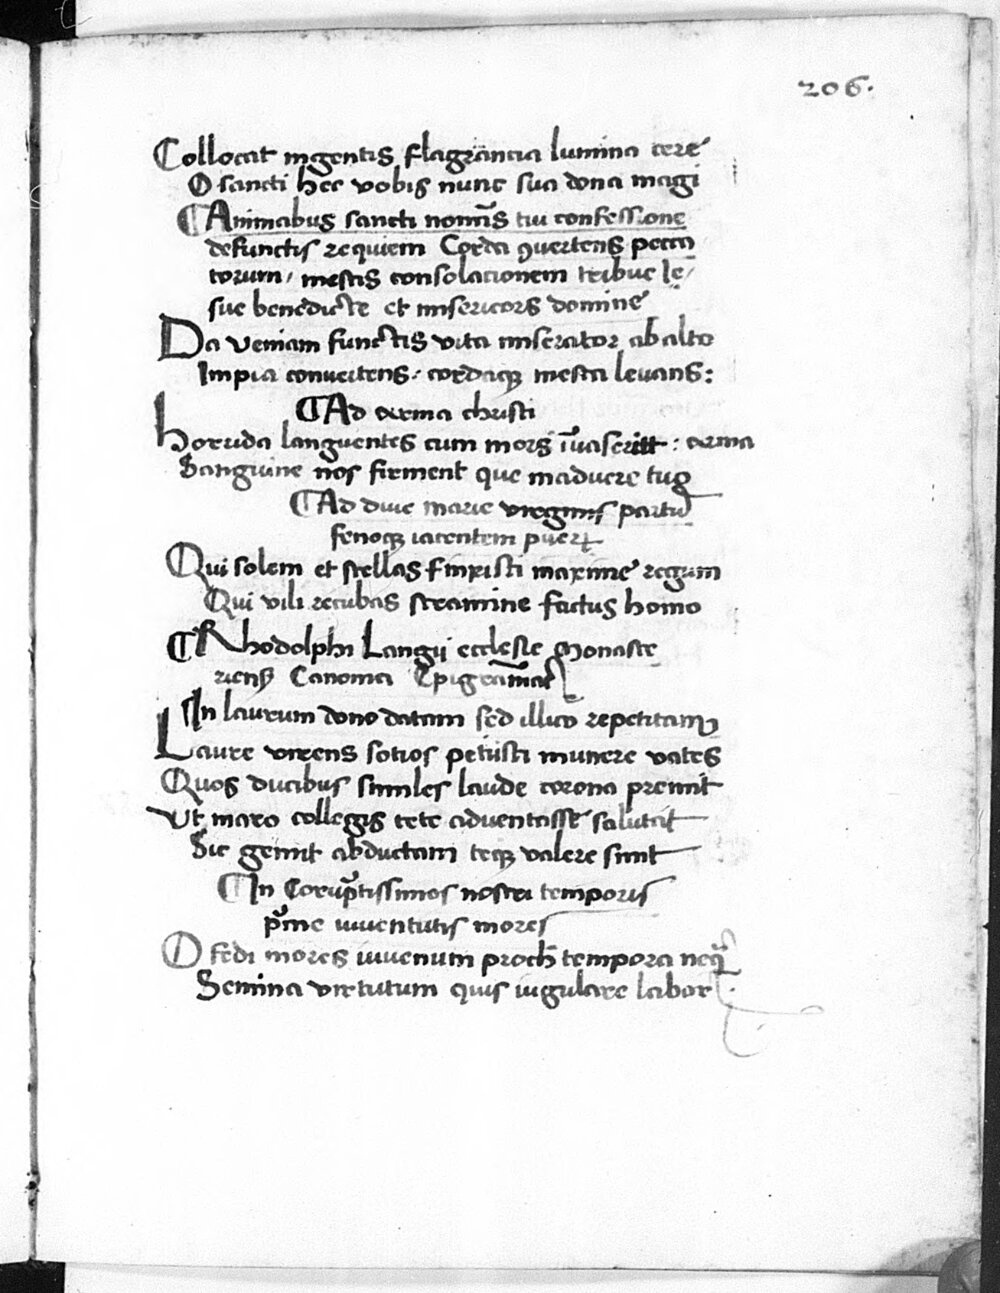 206.
Collocat ingentis flagrancia lumina cere
O sancti hec vobis nunc sua dona magi
¶ Animabus sancti nomīs tui confessione
defunctis requiem Corda ꝯvertens pecca
torum, mestis consolacionem tribue Ie,
sue benedicte et misericors domine
Da veniam functis vita miserator ab alto
Impia convertens. cordaqꝫ mesta levans:
¶ Ad arma christi
horrida languentes cum mors īvaserit: arma
Sanguine nos firment que maduere tuo
¶ Ad dive marie virginis partū
fenoqꝫ iacentem pueꝝ
Qui solem et stellas finxisti maxime regum
Qui vili recubas stramine factus homo
¶ Rhodolphi Langij ecclesie Monaste
riensꝫ Canonici Epigrāmata
In laurum dono datam sed illico repetitam
Laure virens sotios petiisti munere vates
Quos ducibus similes laude corona premit
Ut maro collegis tete adventasse salutat
Sic gemit abductam teqꝫ valere sinit
¶ In Corruptissimos nostri temporis
prīme iuventutis mores
O fedi mores iuvenum proch tempora neqꝫ
Semina virtutum quis iugulare labor.